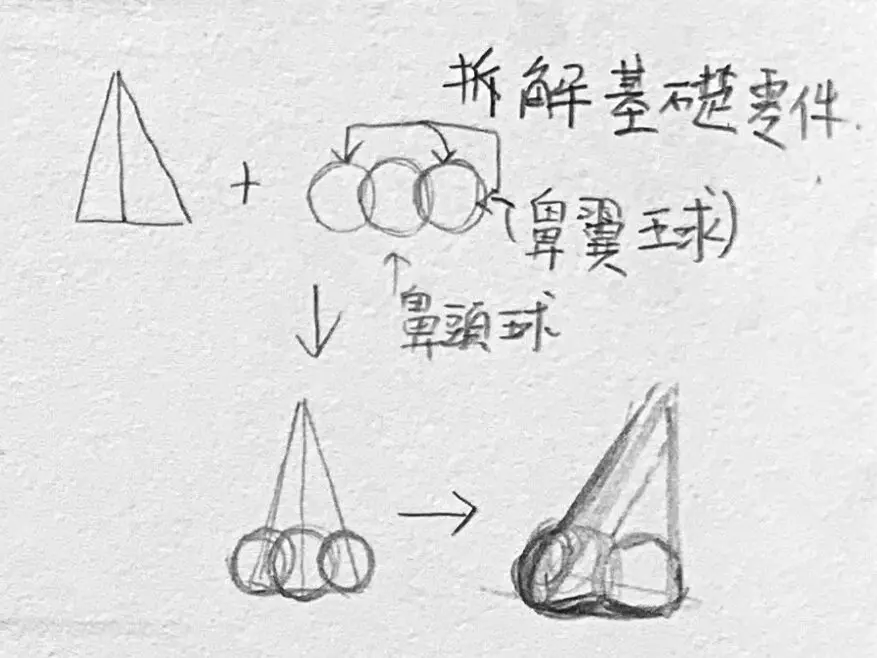 拆解基礎零件.
+
(鼻翼球)
鼻頭球